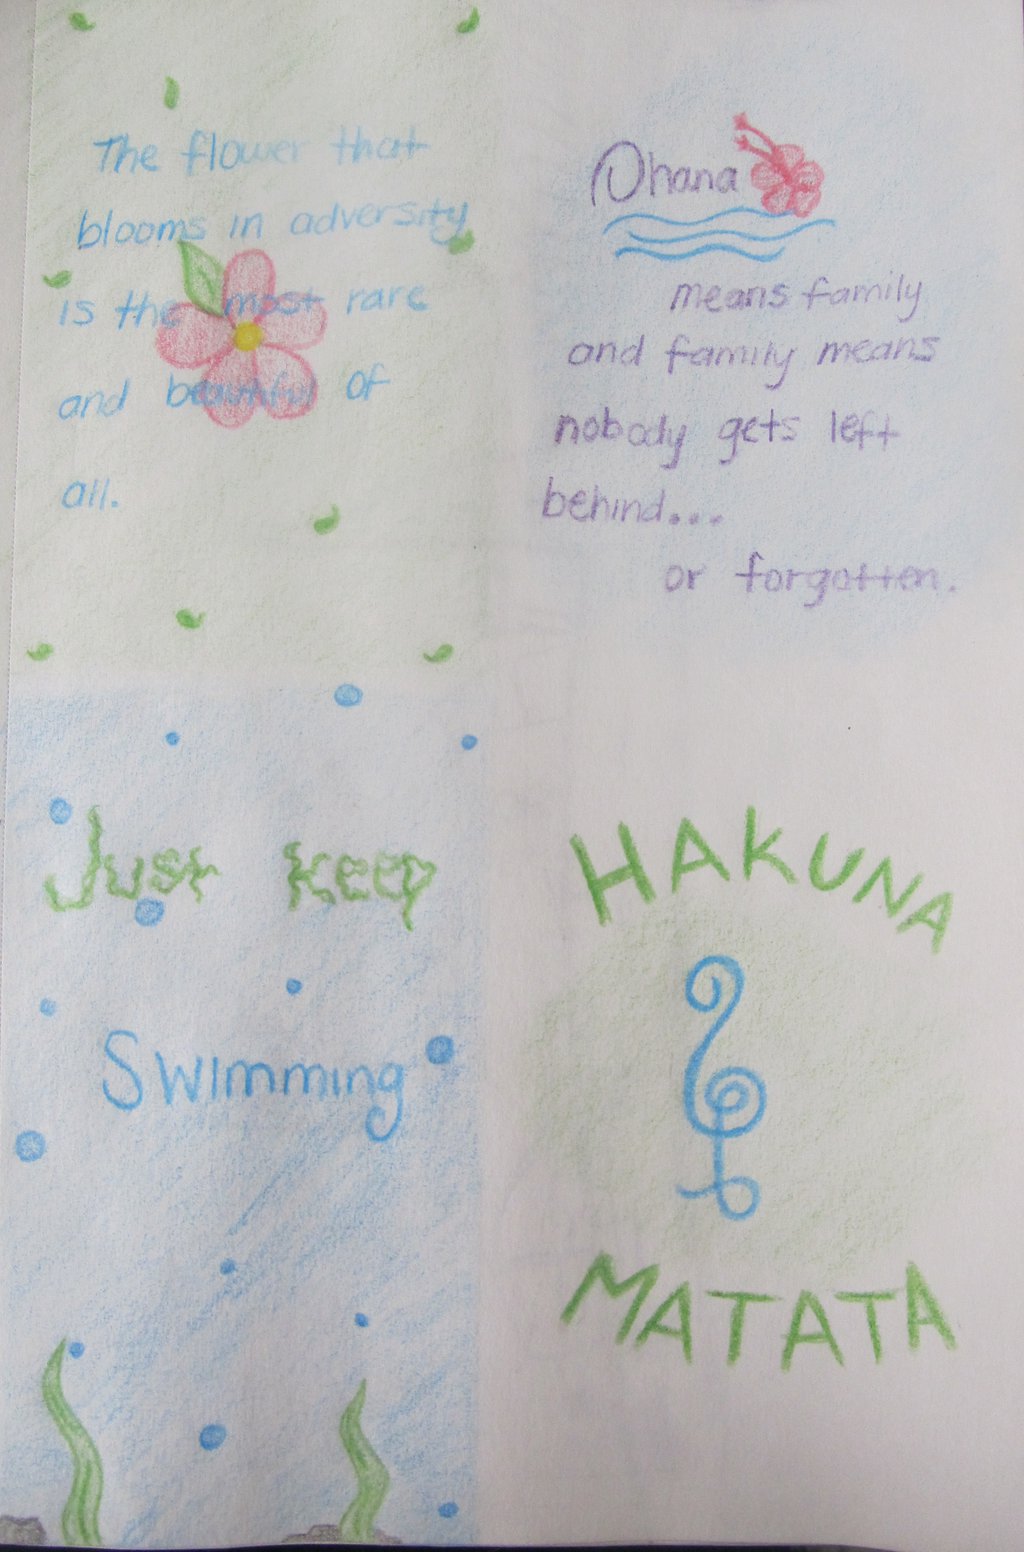 The flower that
blooms in adversity
is the most rare
and beautiful of
all.
Ohana
means family
and family means
nobody gets left
behind...
or forgotten.
Just keep
Swimming
HAKUNA
MATATA